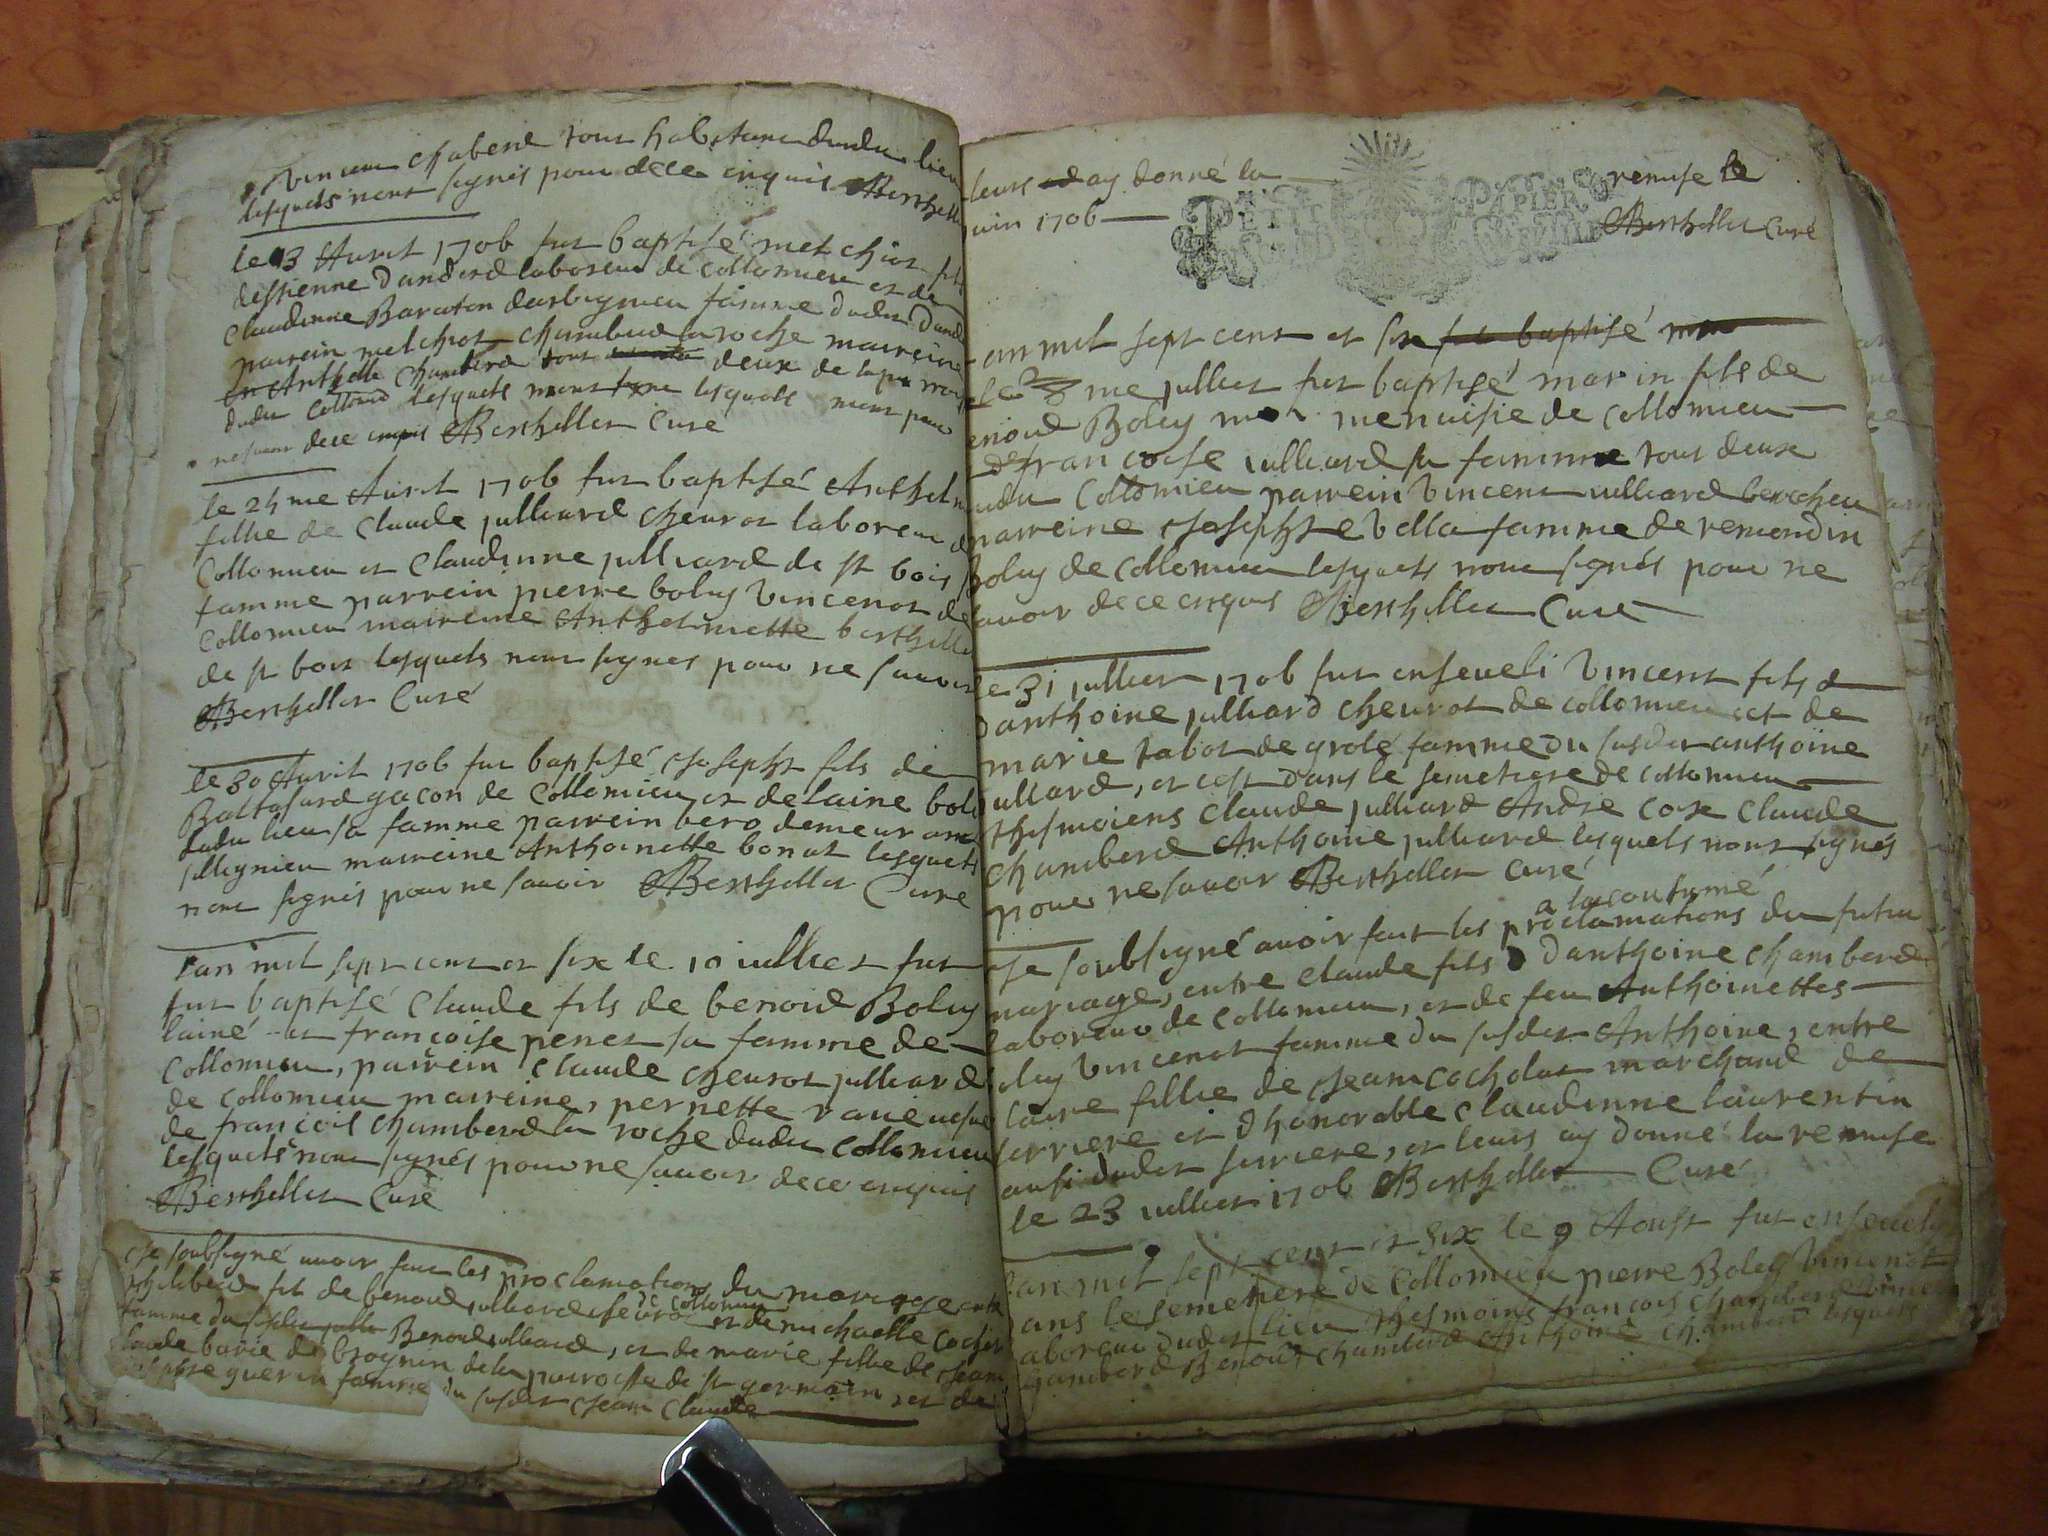 Vincent Chaberd tous habitans dudit lieu
lesquels nont signés pour de ce enquis Berthellet
le 13 Avril 1706 fut baptisé melchiot fils
destienne dander laboreur de Collomieu et de
Claudinne Baraton darbignieu famme dudit
parrein melchiot Chamberd la roche marreine
Anthelle Chamberd tous deux de la parroisse
dudit Collomieu lesquels nont lesquels nont pour
ne savoir de ce enquis Berthellet Curé
le 24me Avril 1706 fut baptisé Anthelme
fillie de Claude julliard cheurot laboreur de
Collomieu et Claudinne julliard de st bois sa
famme parrein pierre boley Vincenot de
Collomieu marreine Anthelmette berthelle
de st bois lesquels nont signes pour ne savoir
Berthellet Curé
le 30 Avril 1706 fut baptisé Joseph fils de
Baltasard gacon de Collomieu et delaine boley
dudit lieu sa famme parrein bero demeurant
sillignieu marreine Anthoinette bonat lesquels
nont signés pour ne savoir Berthellet Curé
lan mil sept cent et six le 10 iulliet fut
fut baptisé Claude fils de benoid Boley
lainé et françoise penet sa famme de
Collomieu, parrein Claude cheurot julliard
de Collomieu marreine, pernette
de francois Chamberd la roche dudit Collomieu
lesquels nont signés pour ne savoir de ce enquis
Berthellet Curé
Je soubsigné avoir fait les proclamations du mariage entre
philiberd fils de benoid julliard cheurot de Collomieu et de michaelle Cochet
famme du Benoid julliard, et de marie fillie de Jean
Claude burie de brognin de la parroisse de st germain et de
guerin famme du susdit Jean Claude
leurs ay donné la remise le
juin 1706 Berthellet Curé
PETIT PAPIER
lan mil sept cent et six fut baptisé
le me julliet fut baptisé marin fils de
benoid Boley menuisie de Collomieu
de francoise iulliard sa famme tous deux
dudit Collomieu parrein Vincent iulliard bercheu
marreine Josephte Vella famme de remondin
Boley de Collomieu lesquels nont signés pour ne
savoir de ce enquis Berthellet Curé
le 31 julliet 1706 fut enseveli Vincent fils
danthoine julliard cheurot de collomieu et de
marie rabot de grolé famme du susdit anthoine
julliard, et cest dans le semetiere de collomieu
thesmoiens Claude julliard Andre Cox Claude
Chamberd Anthoine julliard lesquels nont signés
pour ne savoir Berthellet Curé
a la coutumé
Je soubsigné avoir fait les proclamations du futur
mariage, entre claude fils danthoine chamberd
laboreur de collomieu, et de feu Anthoinettes
boley Vincenot famme du susdit Anthoine, entre
laure fillie de Jean cocholat marchand de
serriere et dhonorable Claudinne laurentin
aussi dudit serriere, et leurs ay donné la remise
le 23 iulliet 1706 Berthellet Curé
lan mil sept cent et six le 9 Aoust fut ensevely
dans le semetiere de Collomieu pierre Boley Vincenot
laboreur dudit lieu thesmoins francois chamberd
chamberd Benoit chamberd Anthoine chamberd lesquels